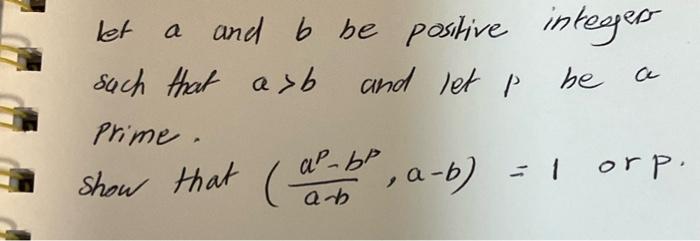 let a and b be positive integers
such that a>b and let p be a
prime.
show that ( \frac{a^p-b^p}{a-b} , a-b) = 1 or p.